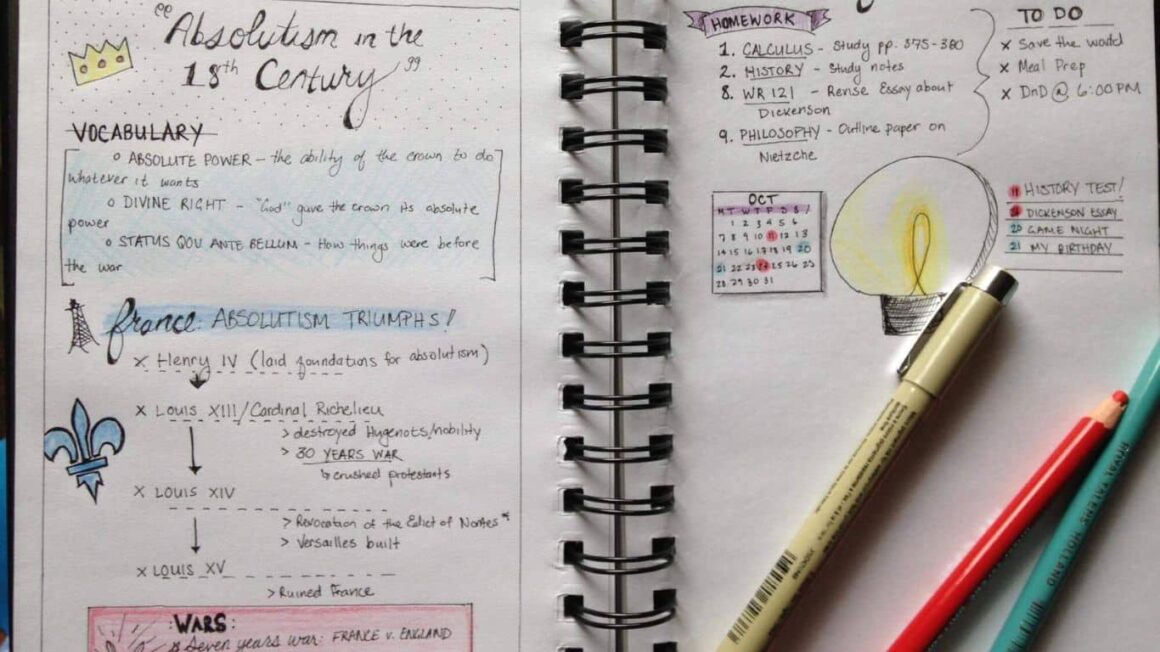 "Absolutism in the
18th Century"
VOCABULARY
° ABSOLUTE POWER - the ability of the crown to do
whatever it wants
° DIVINE RIGHT - "God" gave the crown its absolute
power
° STATUS QOU ANTE BELLUM - How things were before
the war
france: ABSOLUTISM TRIUMPHS!
x Henry IV (laid foundations for absolutism)
x Louis XIII/Cardinal Richelieu
> destroyed Hugenots/nobility
> 30 YEARS WAR
↳ crushed protestants
x LOUIS XIV
> Revocation of the Edict of Nantes*
> Versailles built
x Louis XV
> Ruined France
:WARS:
Seven years war: FRANCE V. ENGLAND
HOMEWORK
1. CALCULUS - Study pp. 375-380
2. HISTORY - Study notes
8. WR 121 - Revise Essay about
Dickenson
9. PHILOSOPHY - Outline paper on
Nietzche
TO DO
x Save the world
x Meal Prep
x DnD @ 6:00 PM
OCT
M T W T F S S
1 2 3 4 5 6
7 8 9 10 11 12 13
14 15 16 17 18 19 20
21 22 23 24 25 26 25
28 29 30 31
11 HISTORY TEST!
24 DICKENSON ESSAY
20 GAME NIGHT
21 MY BIRTHDAY
ROYAL TALENS HOLLAND